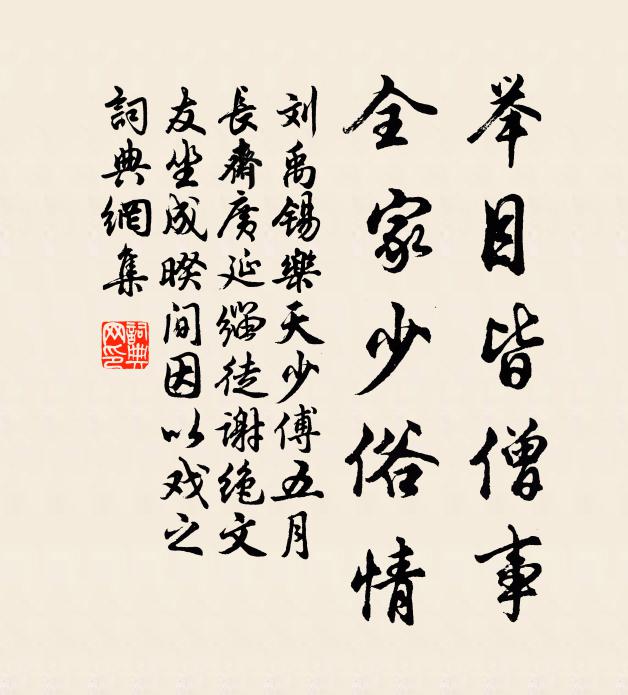 举目皆僧事
全家少俗情
刘禹锡樂天少傅五月
長齋广延缁徒谢绝文
友坐成睽间因以戏之
詞典網集
詞典
网印